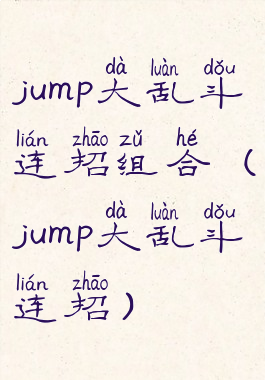 dà luàn dǒu
jump大乱斗
lián zhāo zǔ hé
连招组合（
dà luàn dǒu
jump大乱斗
lián zhāo
连招）